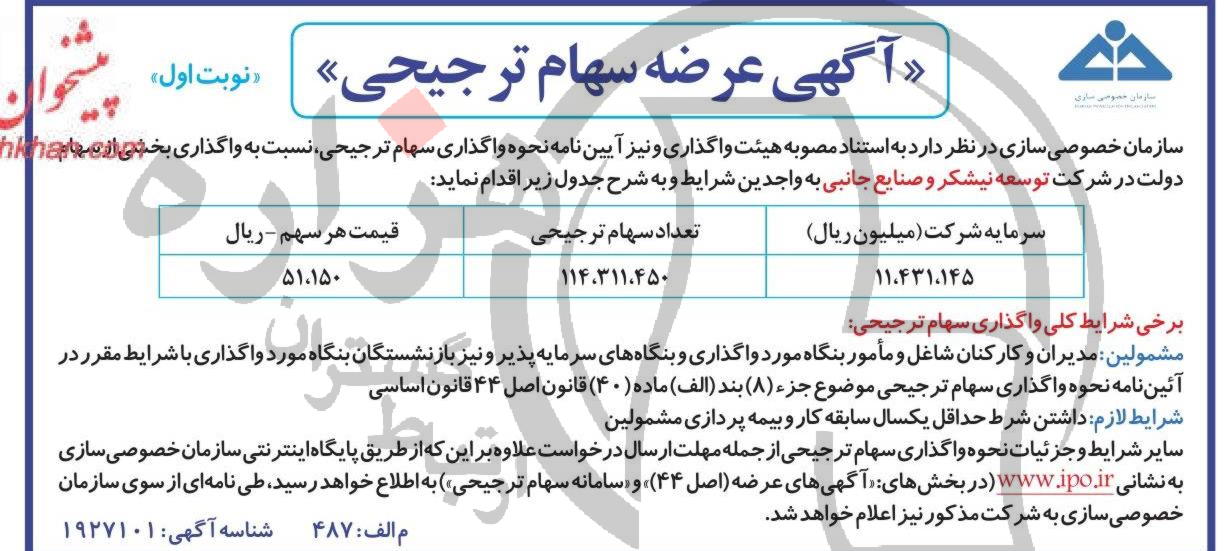 سازمان خصوصی سازی
«آگهی عرضه سهام ترجیحی»
«نوبت اول»
پیشخوان
سازمان خصوصی‌سازی در نظر دارد به استناد مصوبه هیئت واگذاری و نیز آیین‌نامه نحوه واگذاری سهام ترجیحی، نسبت به واگذاری بخشی از سهام
دولت در شرکت توسعه نیشکر و صنایع جانبی به واجدین شرایط و به شرح جدول زیر اقدام نماید:
سرمایه شرکت (میلیون ریال) تعداد سهام ترجیحی قیمت هر سهم - ریال
۱۱،۴۳۱،۱۴۵ ۱۱۴،۳۱۱،۴۵۰ ۵۱،۱۵۰
برخی شرایط کلی واگذاری سهام ترجیحی:
مشمولین: مدیران و کارکنان شاغل و مأمور بنگاه مورد واگذاری و بنگاه‌های سرمایه‌پذیر و نیز بازنشستگان بنگاه مورد واگذاری با شرایط مقرر در
آئین‌نامه نحوه واگذاری سهام ترجیحی موضوع جزء (۸) بند (الف) ماده (۴۰) قانون اصل ۴۴ قانون اساسی
شرایط لازم: داشتن شرط حداقل یکسال سابقه کار و بیمه پردازی مشمولین
سایر شرایط و جزئیات نحوه واگذاری سهام ترجیحی از جمله مهلت ارسال درخواست علاوه بر این که از طریق پایگاه اینترنتی سازمان خصوصی سازی
به نشانی www.ipo.ir (در بخش های: «آگهی های عرضه (اصل ۴۴)» و «سامانه سهام ترجیحی») به اطلاع خواهد رسید، طی نامه‌ای از سوی سازمان
خصوصی سازی به شرکت مذکور نیز اعلام خواهد شد.
م الف: ۴۸۷ شناسه آگهی: ۱۹۲۷۱۰۱
هزاره
گستران
ارتباط